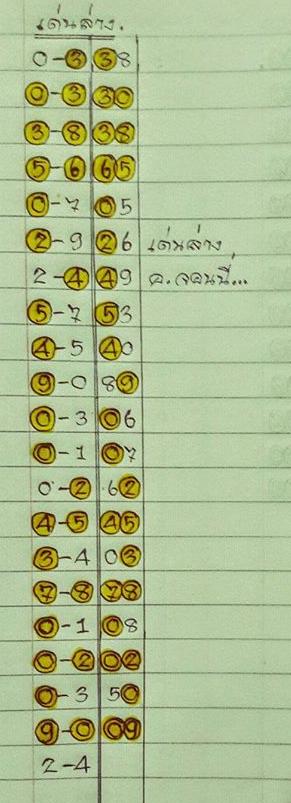 เด่นล่าง.
0-3 38
0-3 30
3-8 38
5-6 65
0-7 05
2-9 26 เด่นล่าง
2-4 49 อ. จอนนี่...
5-7 53
4-5 40
9-0 89
0-3 06
0-1 07
0-2 62
4-5 45
3-4 03
7-8 78
0-1 08
0-2 02
0-3 50
9-0 09
2-4